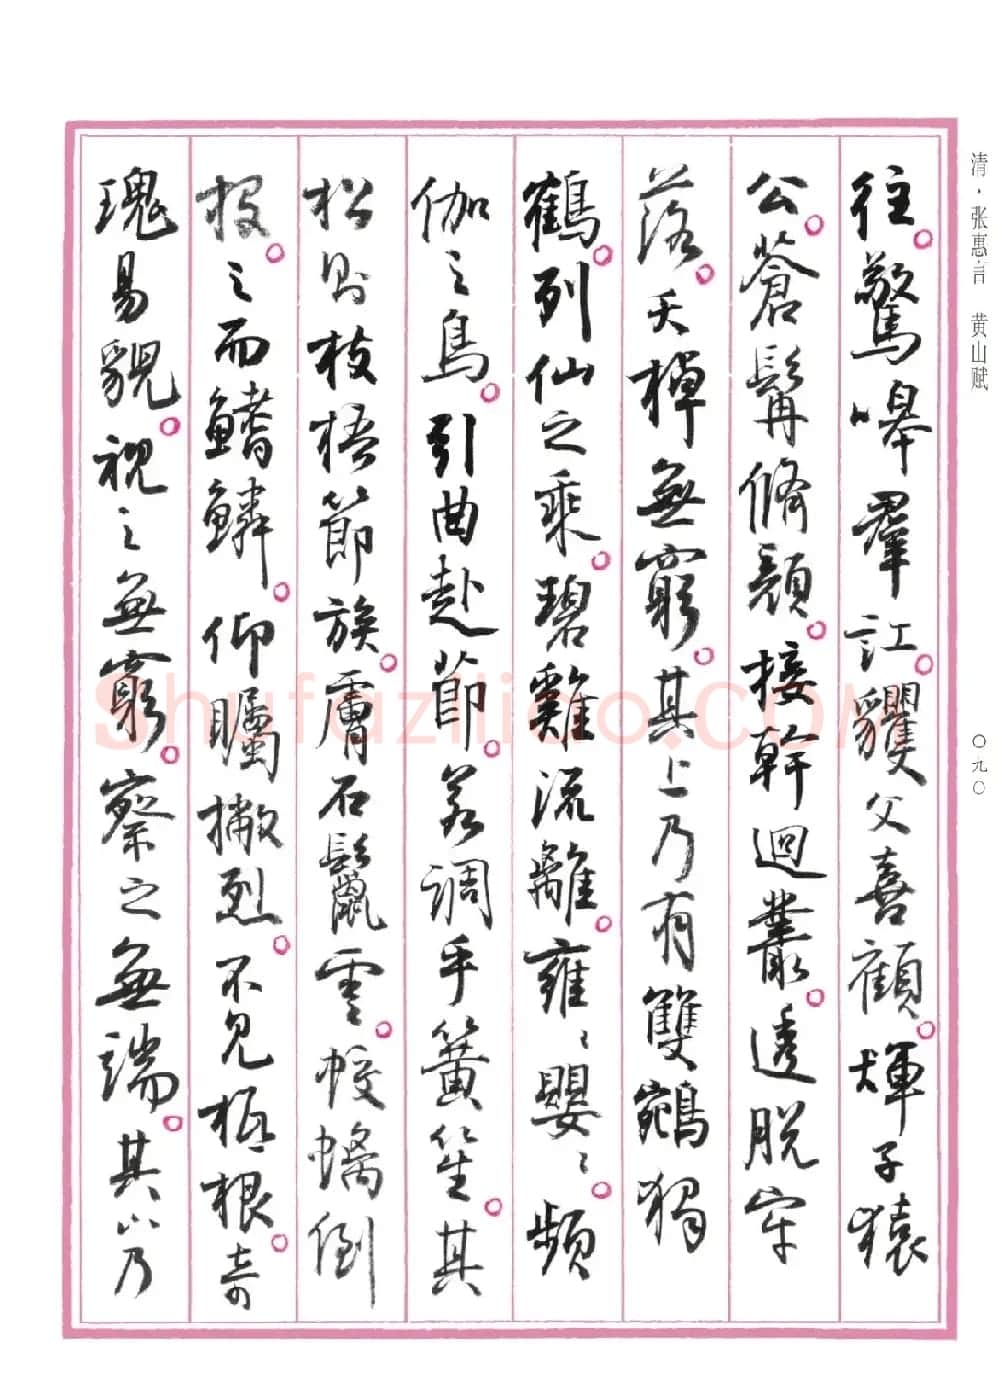 往。驚嗥羣訌。玃父喜顧。㹆子猿
公。蒼髯脩顏。接幹迴叢。透脱牢
落。夭掉無窮。其上乃有雙鵷獨
鶴。列仙之乘。碧雞流離。雍雍嚶嚶。頻
伽之鳥。引曲赴節。若調乎簧笙。其
松則枝梧節族。膚石鬣雲。蛟螭倒
投。之而鰭鱗。仰矚撇烈。不見柢根。奇
瑰易貌。視之無窮。察之無端。其草乃
清·张惠言 黄山赋
〇九〇
Shufaziliao.COM